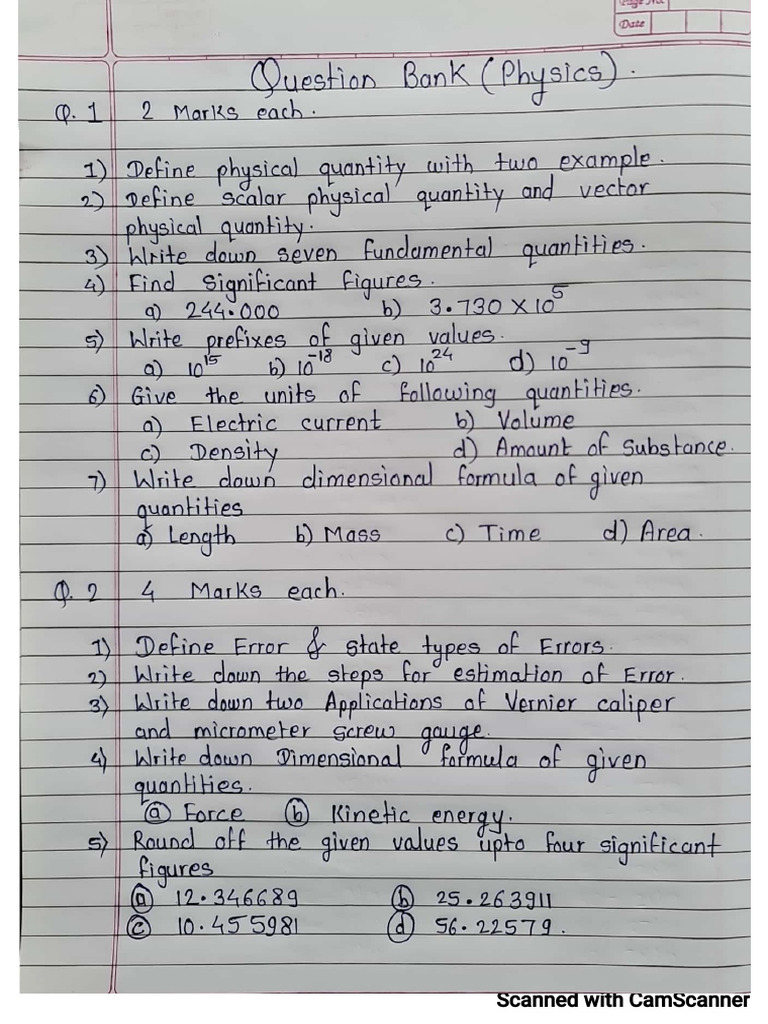 Page No.
Date
Question Bank (Physics).
Q. 1 2 Marks each.
1) Define physical quantity with two example.
2) Define scalar physical quantity and vector
physical quantity.
3) Write down seven fundamental quantities.
4) Find significant figures.
a) 244.000 b) 3.730 × 10⁵
5) Write prefixes of given values.
a) 10¹⁵ b) 10⁻¹⁸ c) 10²⁴ d) 10⁻⁹
6) Give the units of following quantities.
a) Electric current b) Volume
c) Density d) Amount of Substance.
7) Write down dimensional formula of given
quantities
a) Length b) Mass c) Time d) Area.
Q. 2 4 Marks each.
1) Define Error & state types of Errors.
2) Write down the steps for estimation of Error.
3) Write down two Applications of Vernier caliper
and micrometer screw gauge.
4) Write down Dimensional formula of given
quantities.
(a) Force (b) Kinetic energy.
5) Round off the given values upto four significant
figures
(a) 12.346689 (b) 25.263911
(c) 10.455981 (d) 56.22579.
Scanned with CamScanner